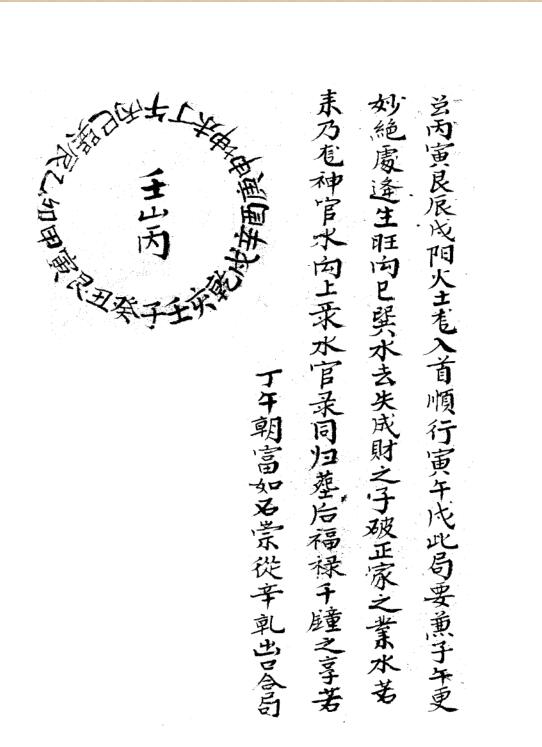 丙寅艮辰戌阳火土龙入首順行寅午戌此局要兼子午更
妙絕處逢生旺向巳巽水去失成財之子破正家之業水若
来乃龙神官水向上录水官录同归墓后福禄千鐘之享若
丁午朝富如石崇從辛乹出口合局
壬山丙
午丁未坤申庚酉辛戌乾亥壬子癸丑艮寅甲卯乙辰巽巳丙